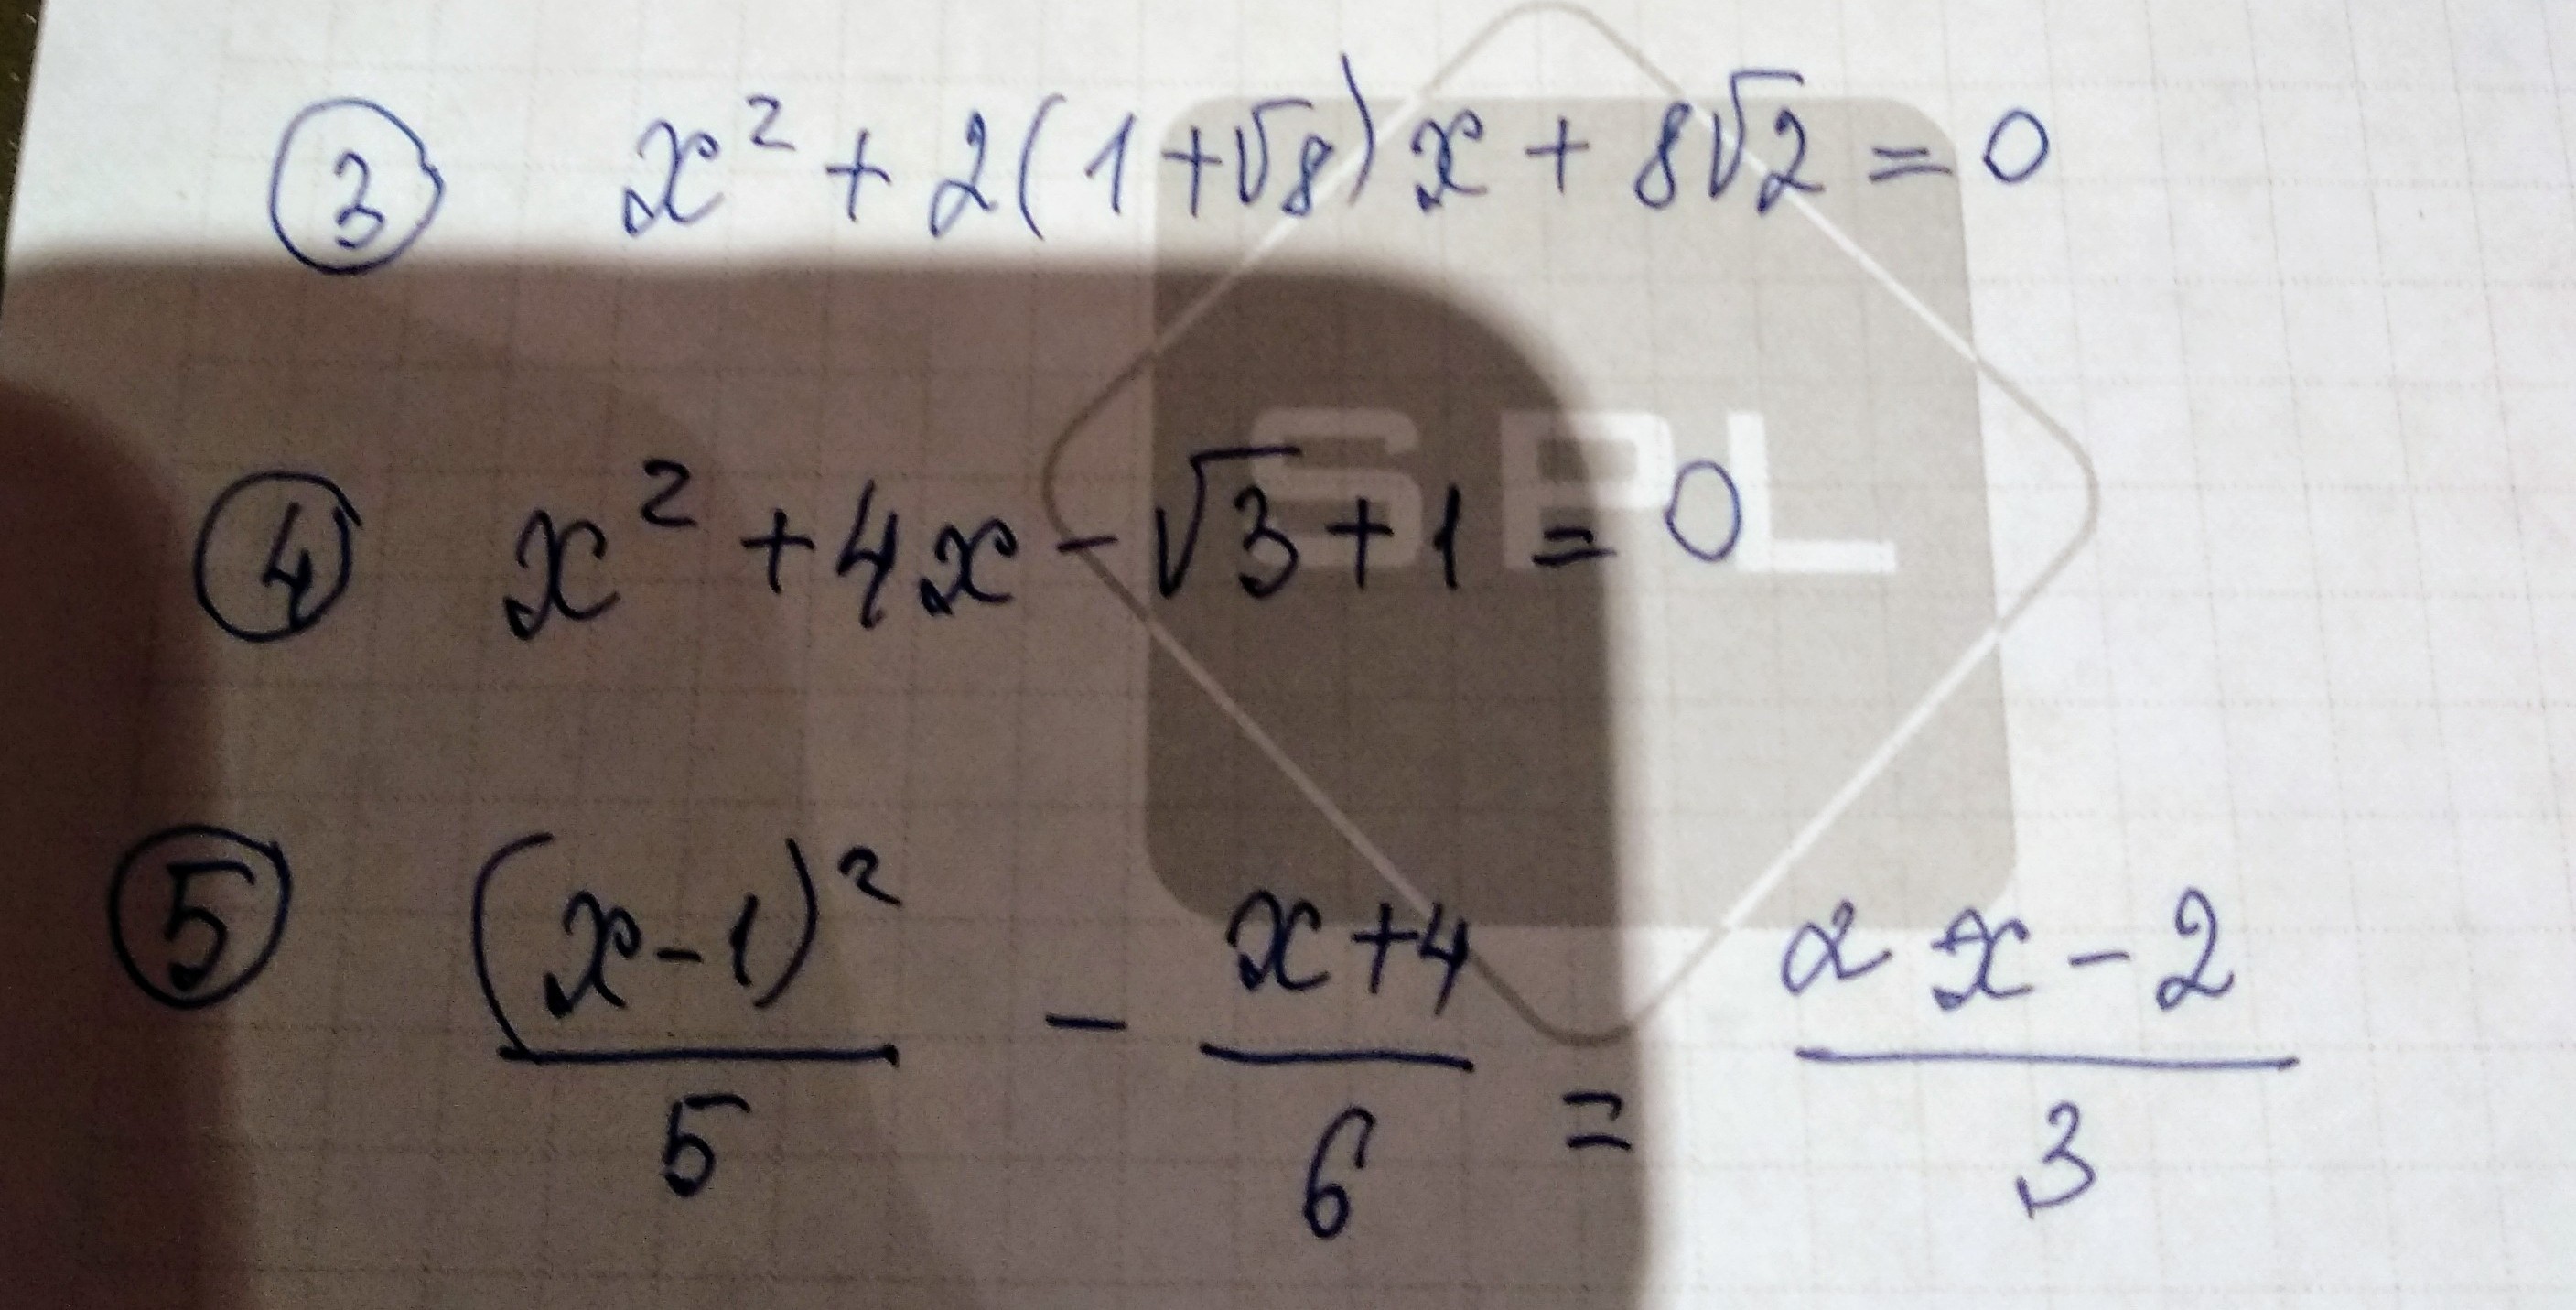 ③ x² + 2(1+√8)x + 8√2 = 0
SPL
④ x² + 4x - √3 + 1 = 0
⑤ (x-1)²/5 - x+4/6 = 2x-2/3